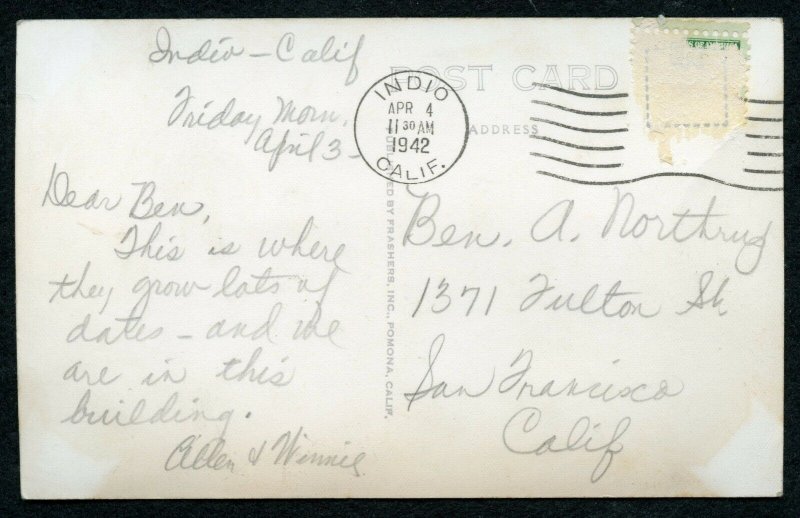 Indio - Calif
Friday Morn.
April 3 -
Dear Ben,
This is where
they grow lots of
dates - and we
are in this
building.
Allen & Winnie
POST CARD
ADDRESS
INDIO
APR 4
11 30 AM
1942
CALIF.
PUBLISHED BY FRASHERS, INC., POMONA, CALIF.
Ben. A. Northrup
1371 Fulton St.
San Francisco
Calif